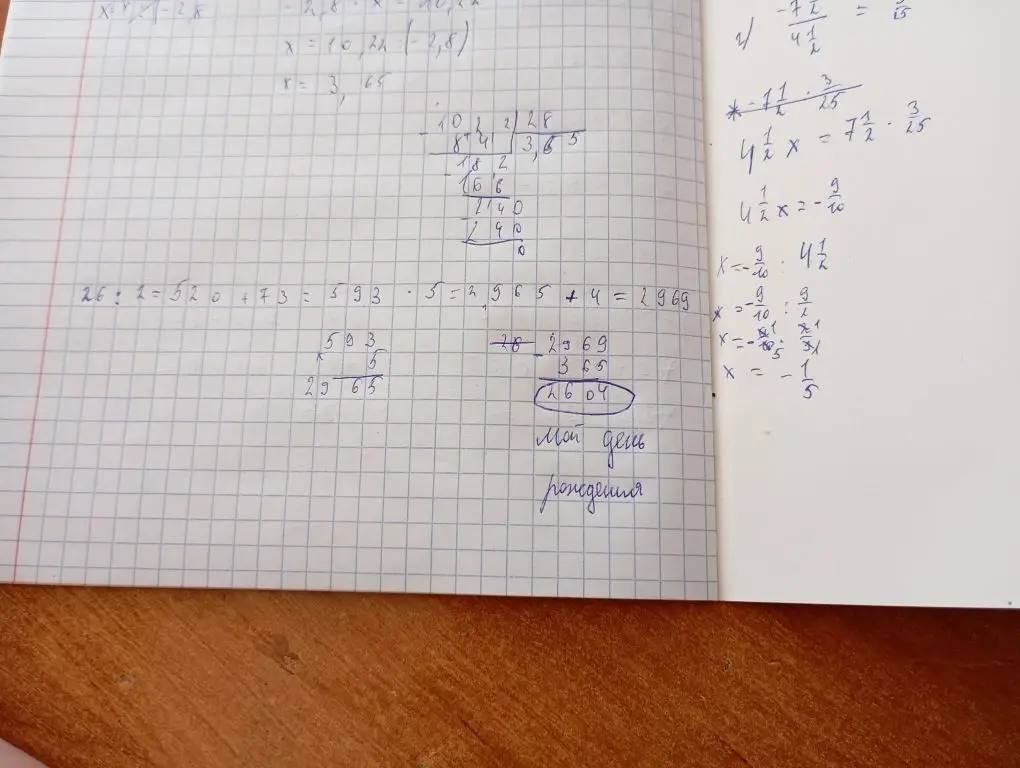 x = 10,22 : (-2,8)
x = 3,65
- 10 2 2 | 28
8 4 | 3,65
- 18 2
16 8
- 2 1 4 0
2 4 0
0
26 : 2 = 520 + 73 = 593 · 5 = 2965 + 4 = 2969
593
× 5
2965
2969
- 365
2604
Мой день
рождения
г) -7 1/2 / 4 1/2 =
-7 1/2 · 3/25
4 1/2 x = 7 1/2 · 3/25
4 1/2 x = - 9/10
x = - 9/10 : 4 1/2
x = - 9/10 : 9/2
x = - 1/5